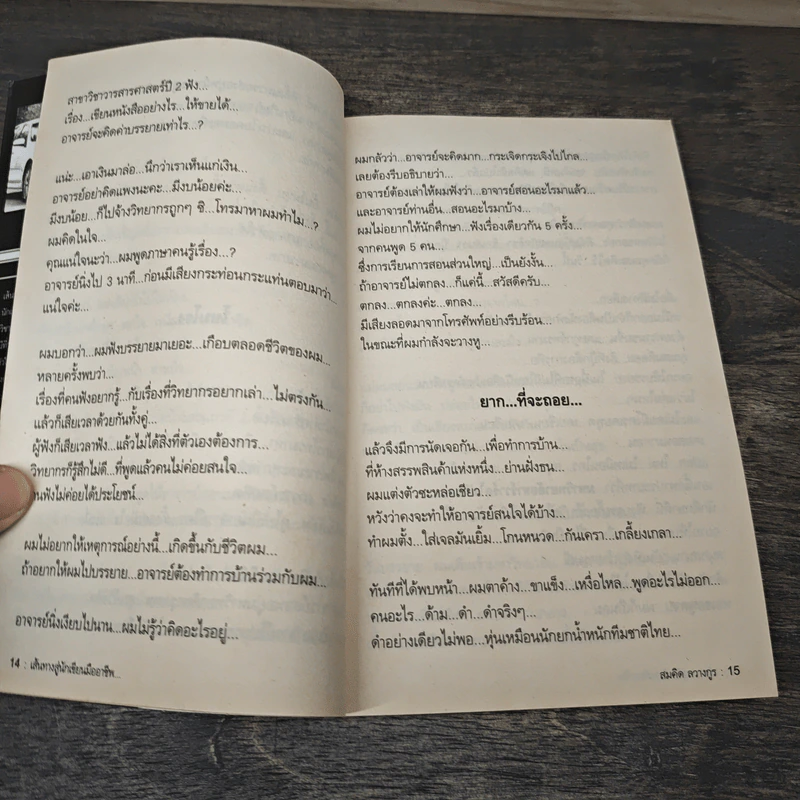 สาขาวิชาวารสารศาสตร์ปี 2 ฟัง...
เรื่อง...เขียนหนังสืออย่างไร...ให้ขายได้...
อาจารย์จะคิดค่าบรรยายเท่าไร...?
แน่ะ...เอาเงินมาล่อ...นึกว่าเราเห็นแก่เงิน...
อาจารย์อย่าคิดแพงนะคะ...มีงบน้อยค่ะ...
มีงบน้อย...ก็ไปจ้างวิทยากรถูกๆ ซิ...โทรมาหาผมทำไม...?
ผมคิดในใจ...
คุณแน่ใจนะว่า...ผมพูดภาษาคนรู้เรื่อง...?
อาจารย์นิ่งไป 3 นาที...ก่อนมีเสียงกระท่อนกระแท่นตอบมาว่า...
แน่ใจค่ะ...
ผมบอกว่า...ผมฟังบรรยายมาเยอะ...เกือบตลอดชีวิตของผม...
หลายครั้งพบว่า...
เรื่องที่คนฟังอยากรู้...กับเรื่องที่วิทยากรอยากเล่า...ไม่ตรงกัน...
แล้วก็เสียเวลาด้วยกันทั้งคู่...
ผู้ฟังก็เสียเวลาฟัง...แล้วไม่ได้สิ่งที่ตัวเองต้องการ...
วิทยากรก็รู้สึกไม่ดี...ที่พูดแล้วคนไม่ค่อยสนใจ...
นฟังไม่ค่อยได้ประโยชน์...
ผมไม่อยากให้เหตุการณ์อย่างนี้...เกิดขึ้นกับชีวิตผม...
ถ้าอยากให้ผมไปบรรยาย...อาจารย์ต้องทำการบ้านร่วมกับผม...
อาจารย์นิ่งเงียบไปนาน...ผมไม่รู้ว่าคิดอะไรอยู่...
14 : เส้นทางสู่นักเขียนมืออาชีพ...
ผมกลัวว่า...อาจารย์จะคิดมาก...กระเจิดกระเจิงไปไกล...
เลยต้องรีบอธิบายว่า...
อาจารย์ต้องเล่าให้ผมฟังว่า...อาจารย์สอนอะไรมาแล้ว...
และอาจารย์ท่านอื่น...สอนอะไรมาบ้าง...
ผมไม่อยากให้นักศึกษา...ฟังเรื่องเดียวกัน 5 ครั้ง...
จากคนพูด 5 คน...
ซึ่งการเรียนการสอนส่วนใหญ่...เป็นยังงั้น...
ถ้าอาจารย์ไม่ตกลง...ก็แค่นี้...สวัสดีครับ...
ตกลง...ตกลงค่ะ...ตกลง...
มีเสียงลอดมาจากโทรศัพท์อย่างรีบร้อน...
ในขณะที่ผมกำลังจะวางหู...
ยาก...ที่จะถอย...
แล้วจึงมีการนัดเจอกัน...เพื่อทำการบ้าน...
ที่ห้างสรรพสินค้าแห่งหนึ่ง...ย่านฝั่งธน...
ผมแต่งตัวซะหล่อเชียว...
หวังว่าคงจะทำให้อาจารย์สนใจได้บ้าง...
ทำผมตั้ง...ใส่เจลมันเยิ้ม...โกนหนวด...กันเครา...เกลี้ยงเกลา...
ทันทีที่ได้พบหน้า...ผมตาค้าง...ขาแข็ง...เหงื่อไหล...พูดอะไรไม่ออก...
คนอะไร...ด้าม...ดำ...ดำจริงๆ...
ดำอย่างเดียวไม่พอ...หุ่นเหมือนนักยกน้ำหนักทีมชาติไทย...
สมคิด ลวางกูร : 15